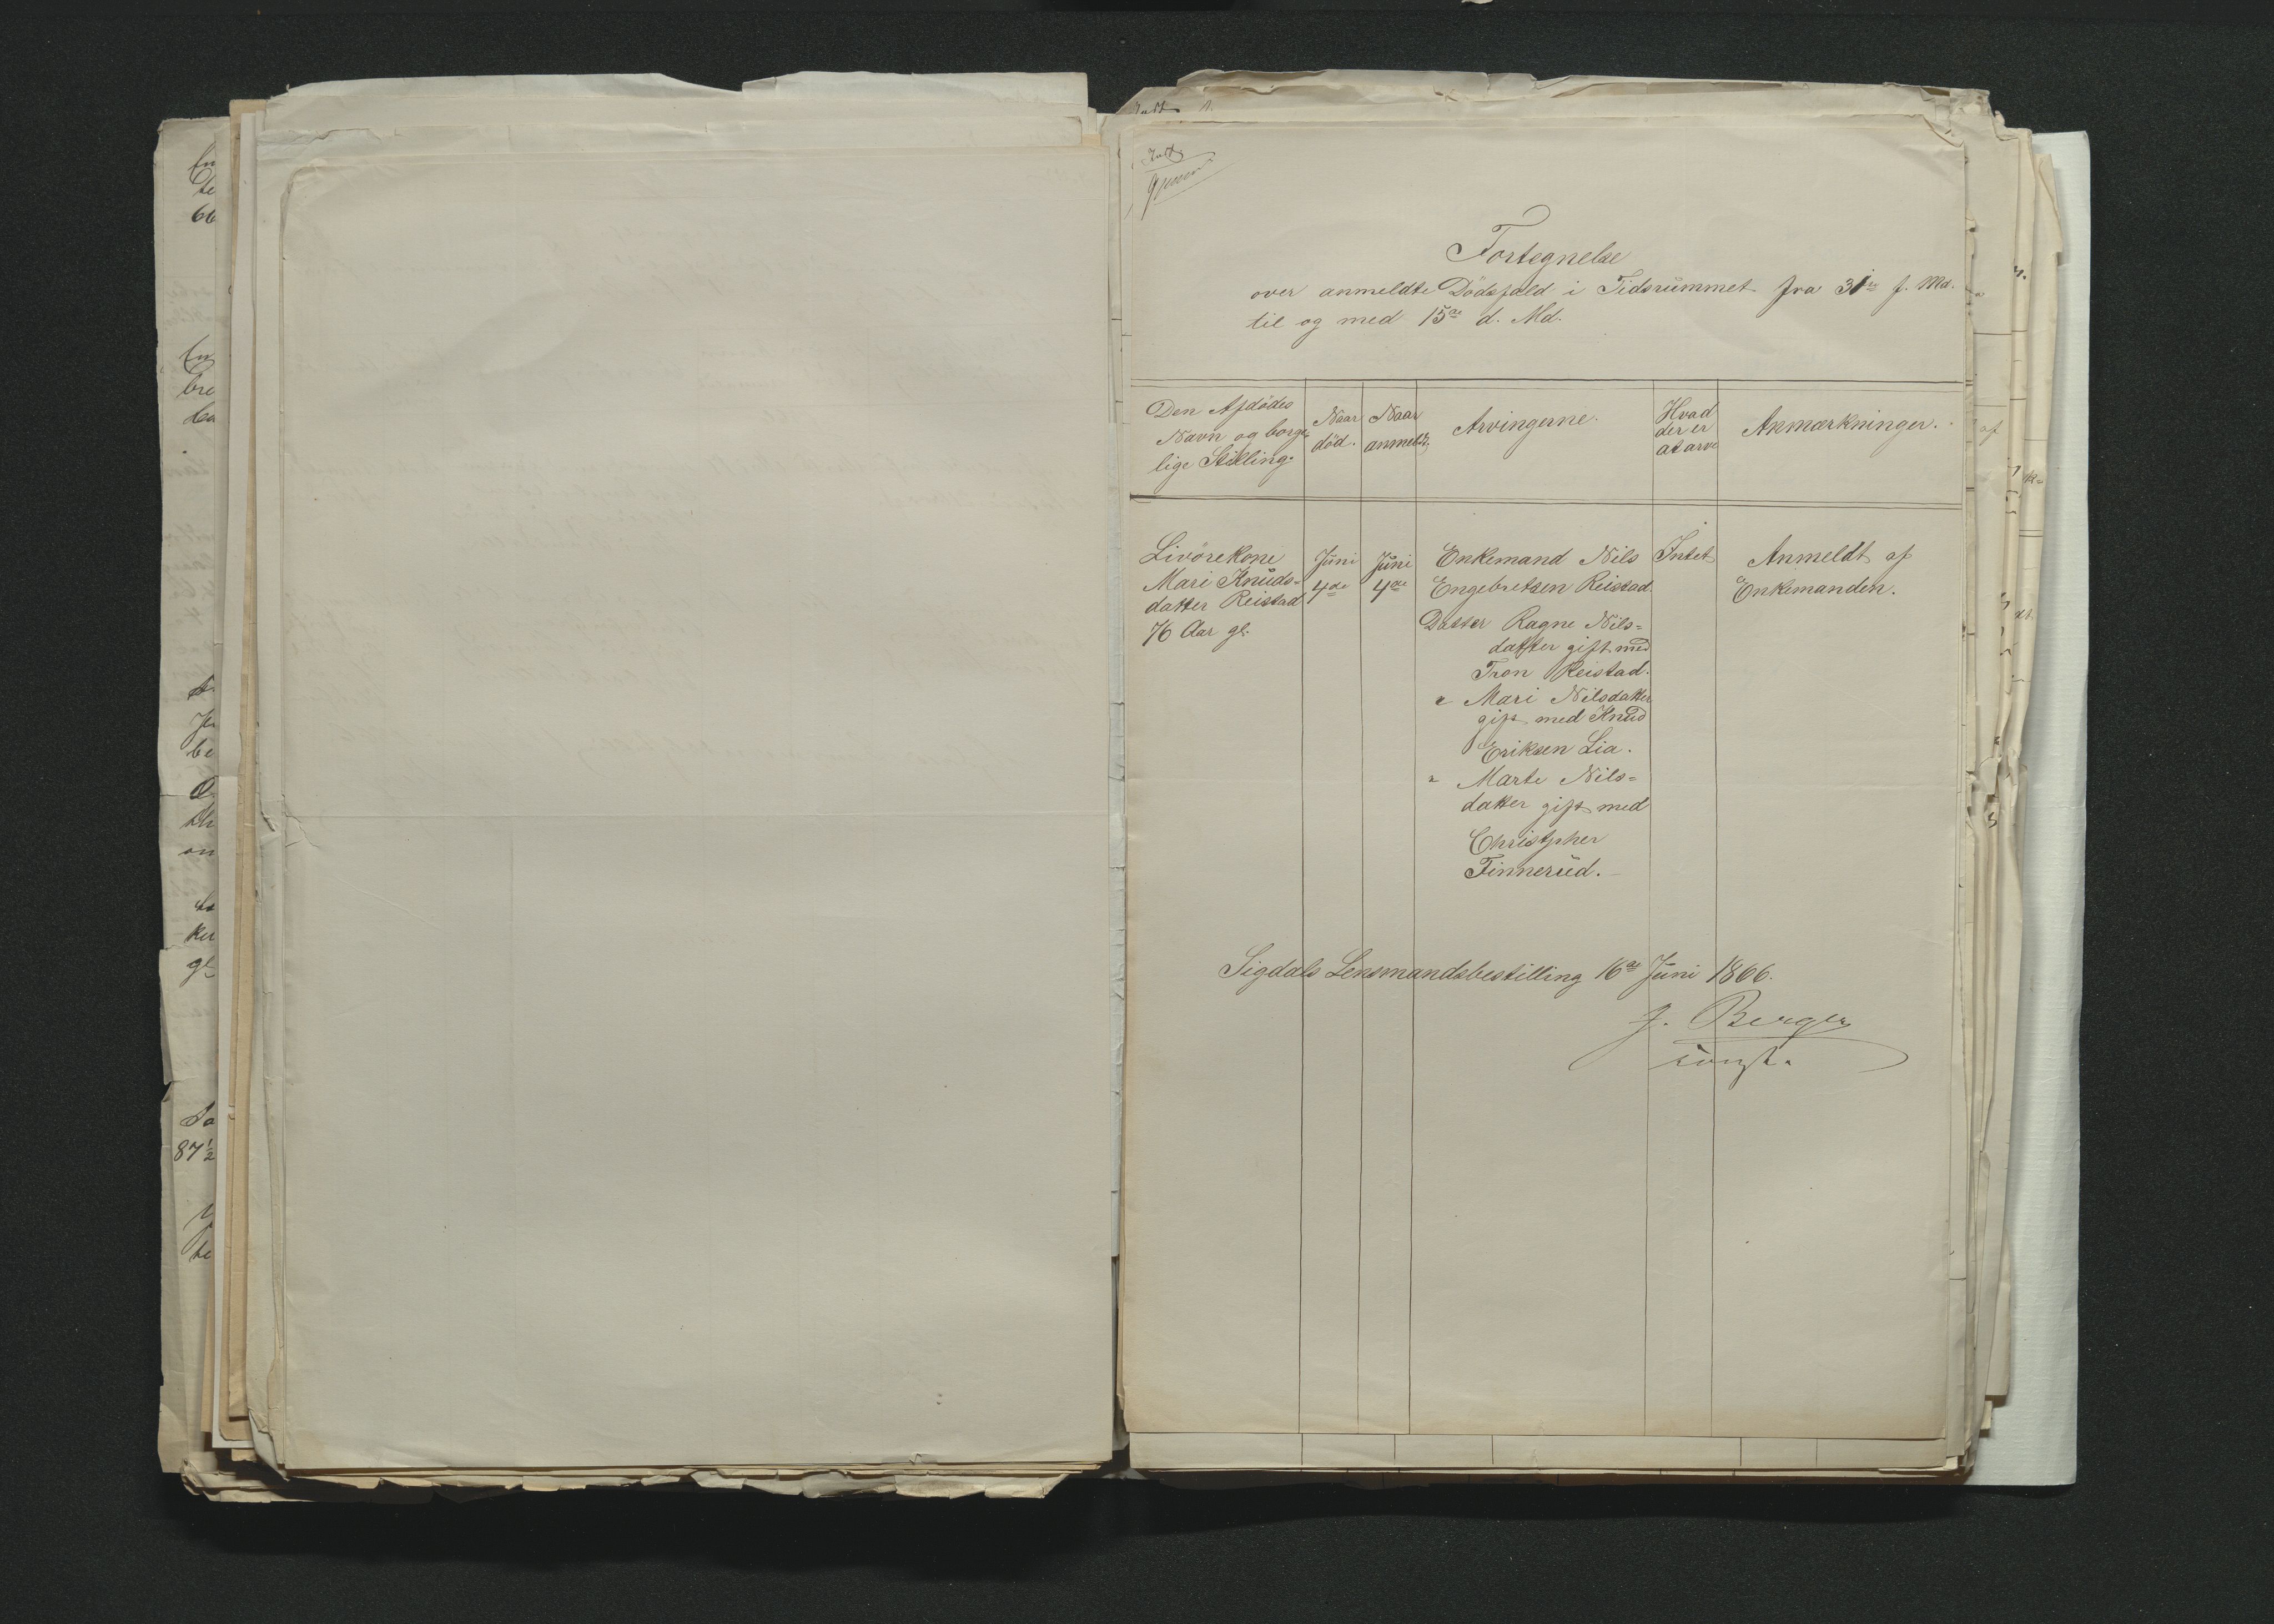 Fortegnelse
over anmeldte Dödsfald i Tidsrummet fra 31te f. Md.
til og med 15de d. Md.
Den Afdödes
Navn og borger
lige Stilling.
Naar
död.
Naar
anmeldt.
Arvingerne.
Hvad
der er
at arve
Anmærkninger.
Livörekone
Mari Knuds-
datter Reistad
76 Aar gl.
Juni
4de
Juni
4de
Enkemand Nils
Engebretsen Reistad.
Datter Ragne Nils-
datter gift med
Tron Reistad.
" Mari Nilsdatter
gift med Knud
Eriksen Lia.
" Marte Nils-
datter gift med
Christpher
Finnerud.
Intet
Anmeldt af
Enkemanden.
Sigdals Lensmandsbestilling 16de Juni 1866.
J. Berger
const.